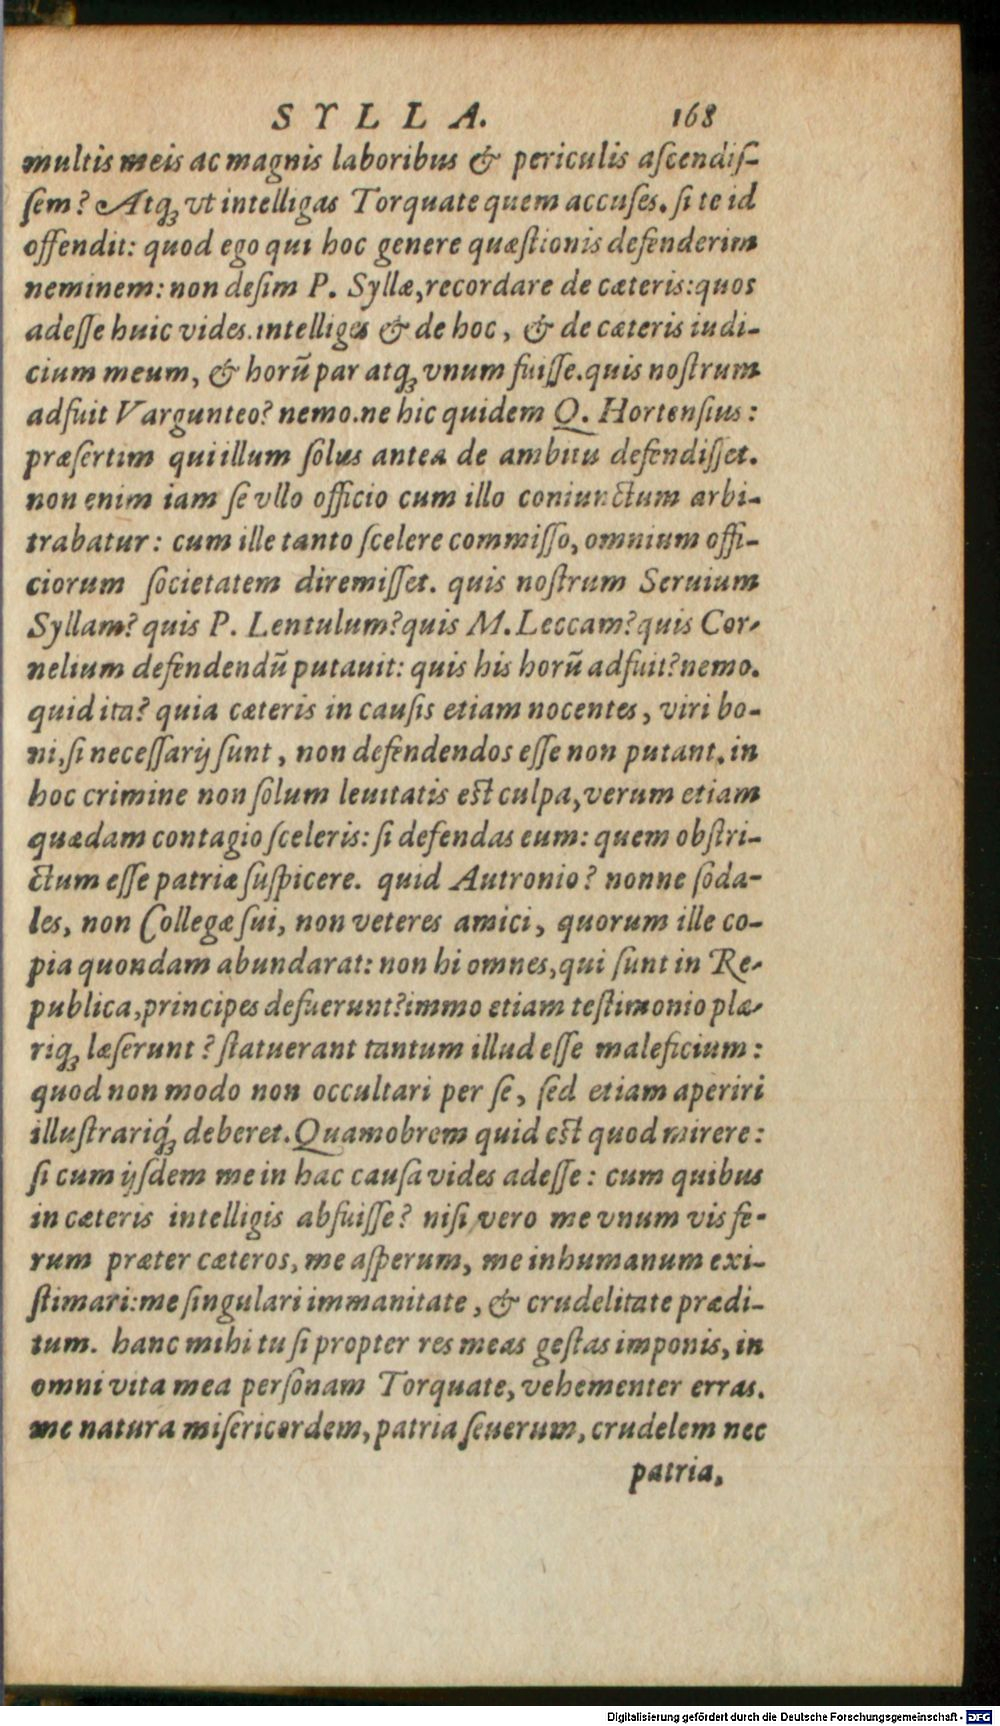 SYLLA. 168
multis meis ac magnis laboribus & periculis aſcendiſ-
ſem? Atq́ꝫ vt intelligas Torquate quem accuſes. ſi te id
offendit: quod ego qui hoc genere quæſtionis defenderim
neminem: non deſim P. Syllæ, recordare de cæteris: quos
adeſſe huic vides. intelliges & de hoc, & de cæteris iudi-
cium meum, & horū par atqꝫ vnum fuiſſe. quis noſtrum
adfuit Vargunteo? nemo. ne hic quidem Q. Hortenſius:
præſertim qui illum ſolus antea de ambitu defendiſſet.
non enim iam ſe vllo officio cum illo coniunctum arbi-
trabatur: cum ille tanto ſcelere commiſſo, omnium offi-
ciorum ſocietatem diremiſſet. quis noſtrum Seruium
Syllam? quis P. Lentulum? quis M. Leccam? quis Cor-
nelium defendendū putauit: quis his horū adfuit? nemo.
quid ita? quia cæteris in cauſis etiam nocentes, viri bo-
ni, ſi neceſſarij ſunt, non defendendos eſſe non putant. in
hoc crimine non ſolum leuitatis eſt culpa, verum etiam
quædam contagio ſceleris: ſi defendas eum: quem obſtri-
ctum eſſe patriæ ſuſpicere. quid Autronio? nonne ſoda-
les, non Collegæ ſui, non veteres amici, quorum ille co-
pia quondam abundarat: non hi omnes, qui ſunt in Re-
publica, principes defuerunt? immo etiam teſtimonio plæ-
riqꝫ læſerunt? ſtatuerant tantum illud eſſe maleficium:
quod non modo non occultari per ſe, ſed etiam aperiri
illuſtrariq́ꝫ deberet. Quamobrem quid eſt quod mirere:
ſi cum ijſdem me in hac cauſa vides adeſſe: cum quibus
in cæteris intelligis abfuiſſe? niſi vero me vnum vis fe-
rum præter cæteros, me aſperum, me inhumanum exi-
ſtimari: me ſingulari immanitate, & crudelitate prædi-
tum. hanc mihi tu ſi propter res meas geſtas imponis, in
omni vita mea perſonam Torquate, vehementer erras.
me natura miſericordem, patria ſeuerum, crudelem nec
patria,
Digitalisierung gefördert durch die Deutsche Forschungsgemeinschaft - DFG